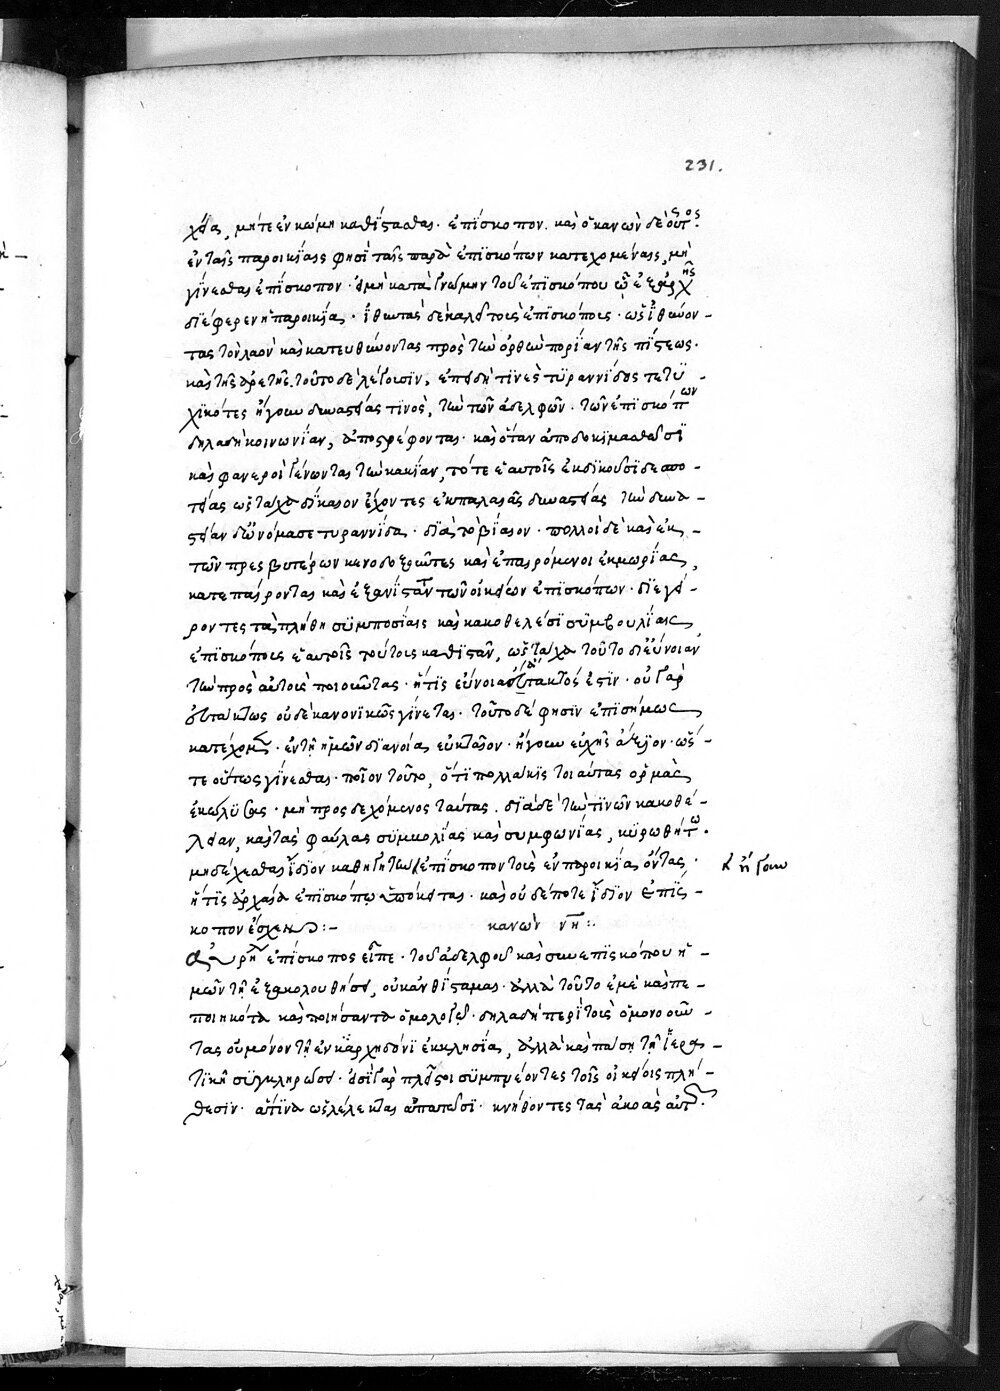 231.
χεία, μήτε ἐν κώμη καθίστασθαι ἐπίσκοπον. καὶ ὁ κανὼν δὲ οὗτος
ἐν ταῖς παροικίαις φησὶ ταῖς παρὰ ἐπισκόπων κατεχομέναις, μὴ
γίνεσθαι ἐπίσκοπον· εἰ μὴ κατὰ γνώμην τοῦ ἐπισκόπου ᾧ ἐξ ἀρχῆς
διέφερεν ἡ παροικία. ἰθύντας δὲ καλεῖ τοὺς ἐπισκόπους· ὡς ἰθύνον-
τας τὸν λαὸν καὶ κατευθύνοντας πρὸς τὴν ὀρθὴν πορίαν τῆς πίστεως.
καὶ τῆς ἀρετῆς. τοῦτο δὲ λέγουσιν, ἐπειδή τινες τυραννίδος τετυ-
χικότες ἤγουν δυναστείας τινὸς, τὴν τῶν ἀδελφῶν. τῶν ἐπισκόπων
δηλαδὴ κοινωνίαν, ἀποστρέφονται· καὶ ὅταν ἀποδοκιμασθῶσι
καὶ φανεροὶ γένωνται τὴν κακίαν, τότε ἑαυτοῖς ἐκδικοῦσι δεσπο-
τείας ὡς τάχα δίκαιον ἔχοντες ἐκ παλαιᾶς δυναστείας τὴν δυνα-
στείαν δὲ ὠνόμασε τυραννίδα. διὰ τὸ βίαιον· πολλοὶ δὲ καὶ ἐκ
τῶν πρεσβυτέρων κενοδοξοῦντες καὶ ἐπαιρόμενοι ἐκ μωρίας,
κατεπαίρονται καὶ ἐξανίστανται τῶν οἰκείων ἐπισκόπων· διεγεί-
ροντες τὰ πλήθη συμποσίαις καὶ κακοθελέσι συμβουλίαις
ἐπισκόπους ἑαυτοῖς τούτους καθιστᾶν, ὡς τάχα τοῦτο δι' εὔνοιαν
τὴν πρὸς αὐτοὺς ποιοῦντας· ἥτις εὔνοια ἄτακτός ἐστιν· οὐ γὰρ
εὐτάκτως οὐδὲ κανονικῶς γίνεται. τοῦτο δέ φησιν ἐπισήμως
κατέχομεν· ἐν τῇ ἡμῶν διανοίᾳ εὐκταῖον· ἤγουν εὐχῆς ἄξιον· ὡσ-
τε οὕτως γίνεσθαι· ποῖον τοῦτο, ὅτι πολλάκις τοιαύτας ὁρμὰς
ἐκώλυσας. μὴ προσδεχόμενος ταύτας. διὰ δὲ τὴν τινῶν κακοθέ-
λειαν, καὶ τὰς φαύλας συμβουλίας καὶ συμφωνίας, κυρωθήτω.
μὴ δέχεσθαι ἴδιον καθηγητὴν ἐπίσκοπον τοὺς ἐν παροικίᾳ ὄντας,
ἤγουν
ἥτις ἀρχαίῳ ἐπισκόπῳ ὑπόκειται. καὶ οὐδέποτε ἴδιον ἐπίσ-
κοπον ἔσχεν:-
κανὼν νη:·
Αὐρήλιος ἐπίσκοπος εἶπε. τοῦ ἀδελφοῦ καὶ συνεπισκόπου ἡ-
μῶν τῇ ἐξακολουθήσει, οὐκ ἀνθίσταμαι. ἀλλὰ τοῦτο ἐμὲ καὶ πε-
ποιηκότα καὶ ποιήσαντα ὁμολογῶ. δηλαδὴ περὶ τοὺς ὁμονοοῦν-
τας οὐ μόνον τῇ ἐν Καρχηδόνι ἐκκλησίᾳ, ἀλλὰ καὶ πάσῃ τῇ ἱερα-
τικῇ συγκληρώσει. εἰσὶ γὰρ πλεῖστοι συμπνέοντες τοῖς οἰκείοις πλή-
θεσιν. ἅτινα ὡς λέλεκται ἀπατῶσι. κνήθοντες τὰς ἀκοὰς αὐτῶν.